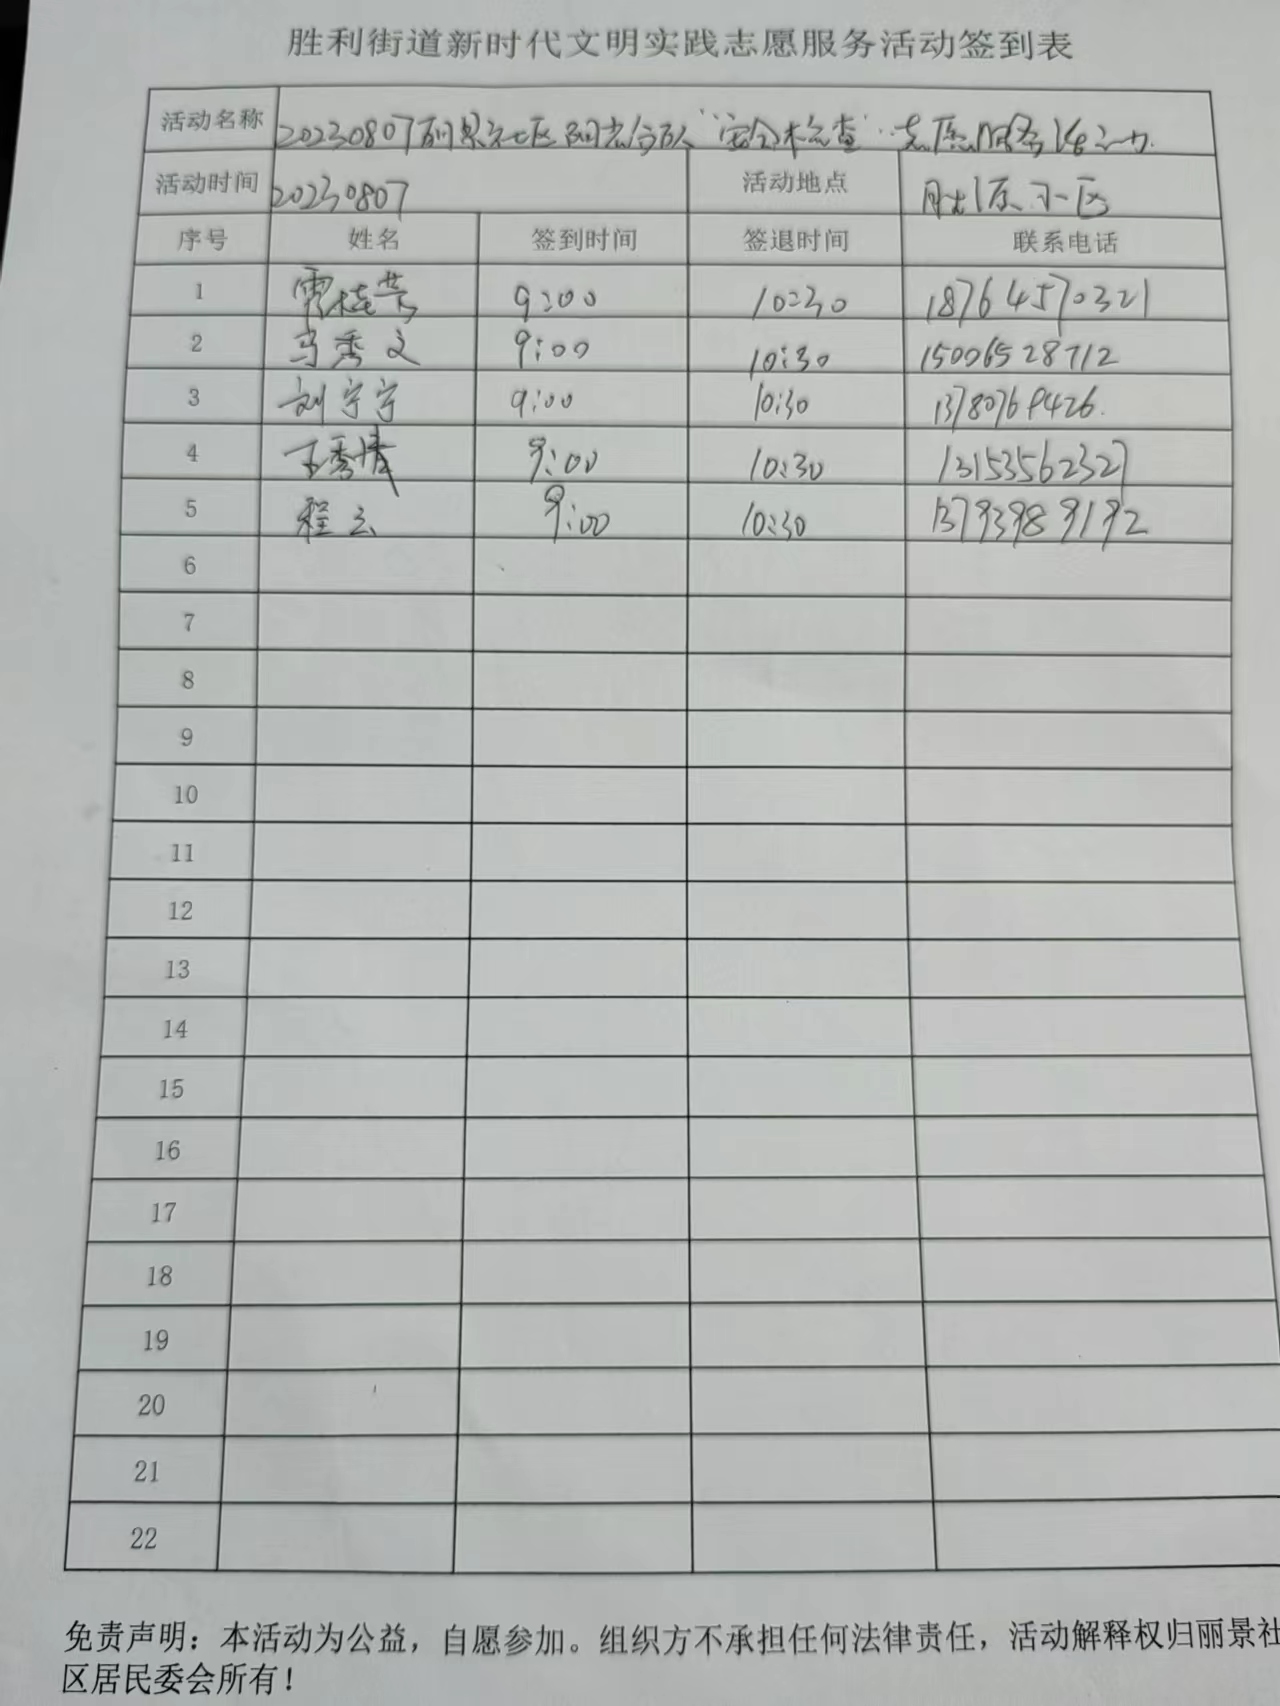 胜利街道新时代文明实践志愿服务活动签到表
活动名称 20230807丽景社区网志分队“安全检查”志愿服务活动.
活动时间 20230807 活动地点 胜源小区
序号 姓名 签到时间 签退时间 联系电话
1 贾桂芳 9:00 10:30 18764570321
2 马秀文 9:00 10:30 15006528712
3 刘宁宁 9:00 10:30 13780769426.
4 王秀清 9:00 10:30 13153562327
5 程云 9:00 10:30 13793989192
6
7
8
9
10
11
12
13
14
15
16
17
18
19
20
21
22
免责声明：本活动为公益，自愿参加。组织方不承担任何法律责任，活动解释权归丽景社
区居民委会所有！